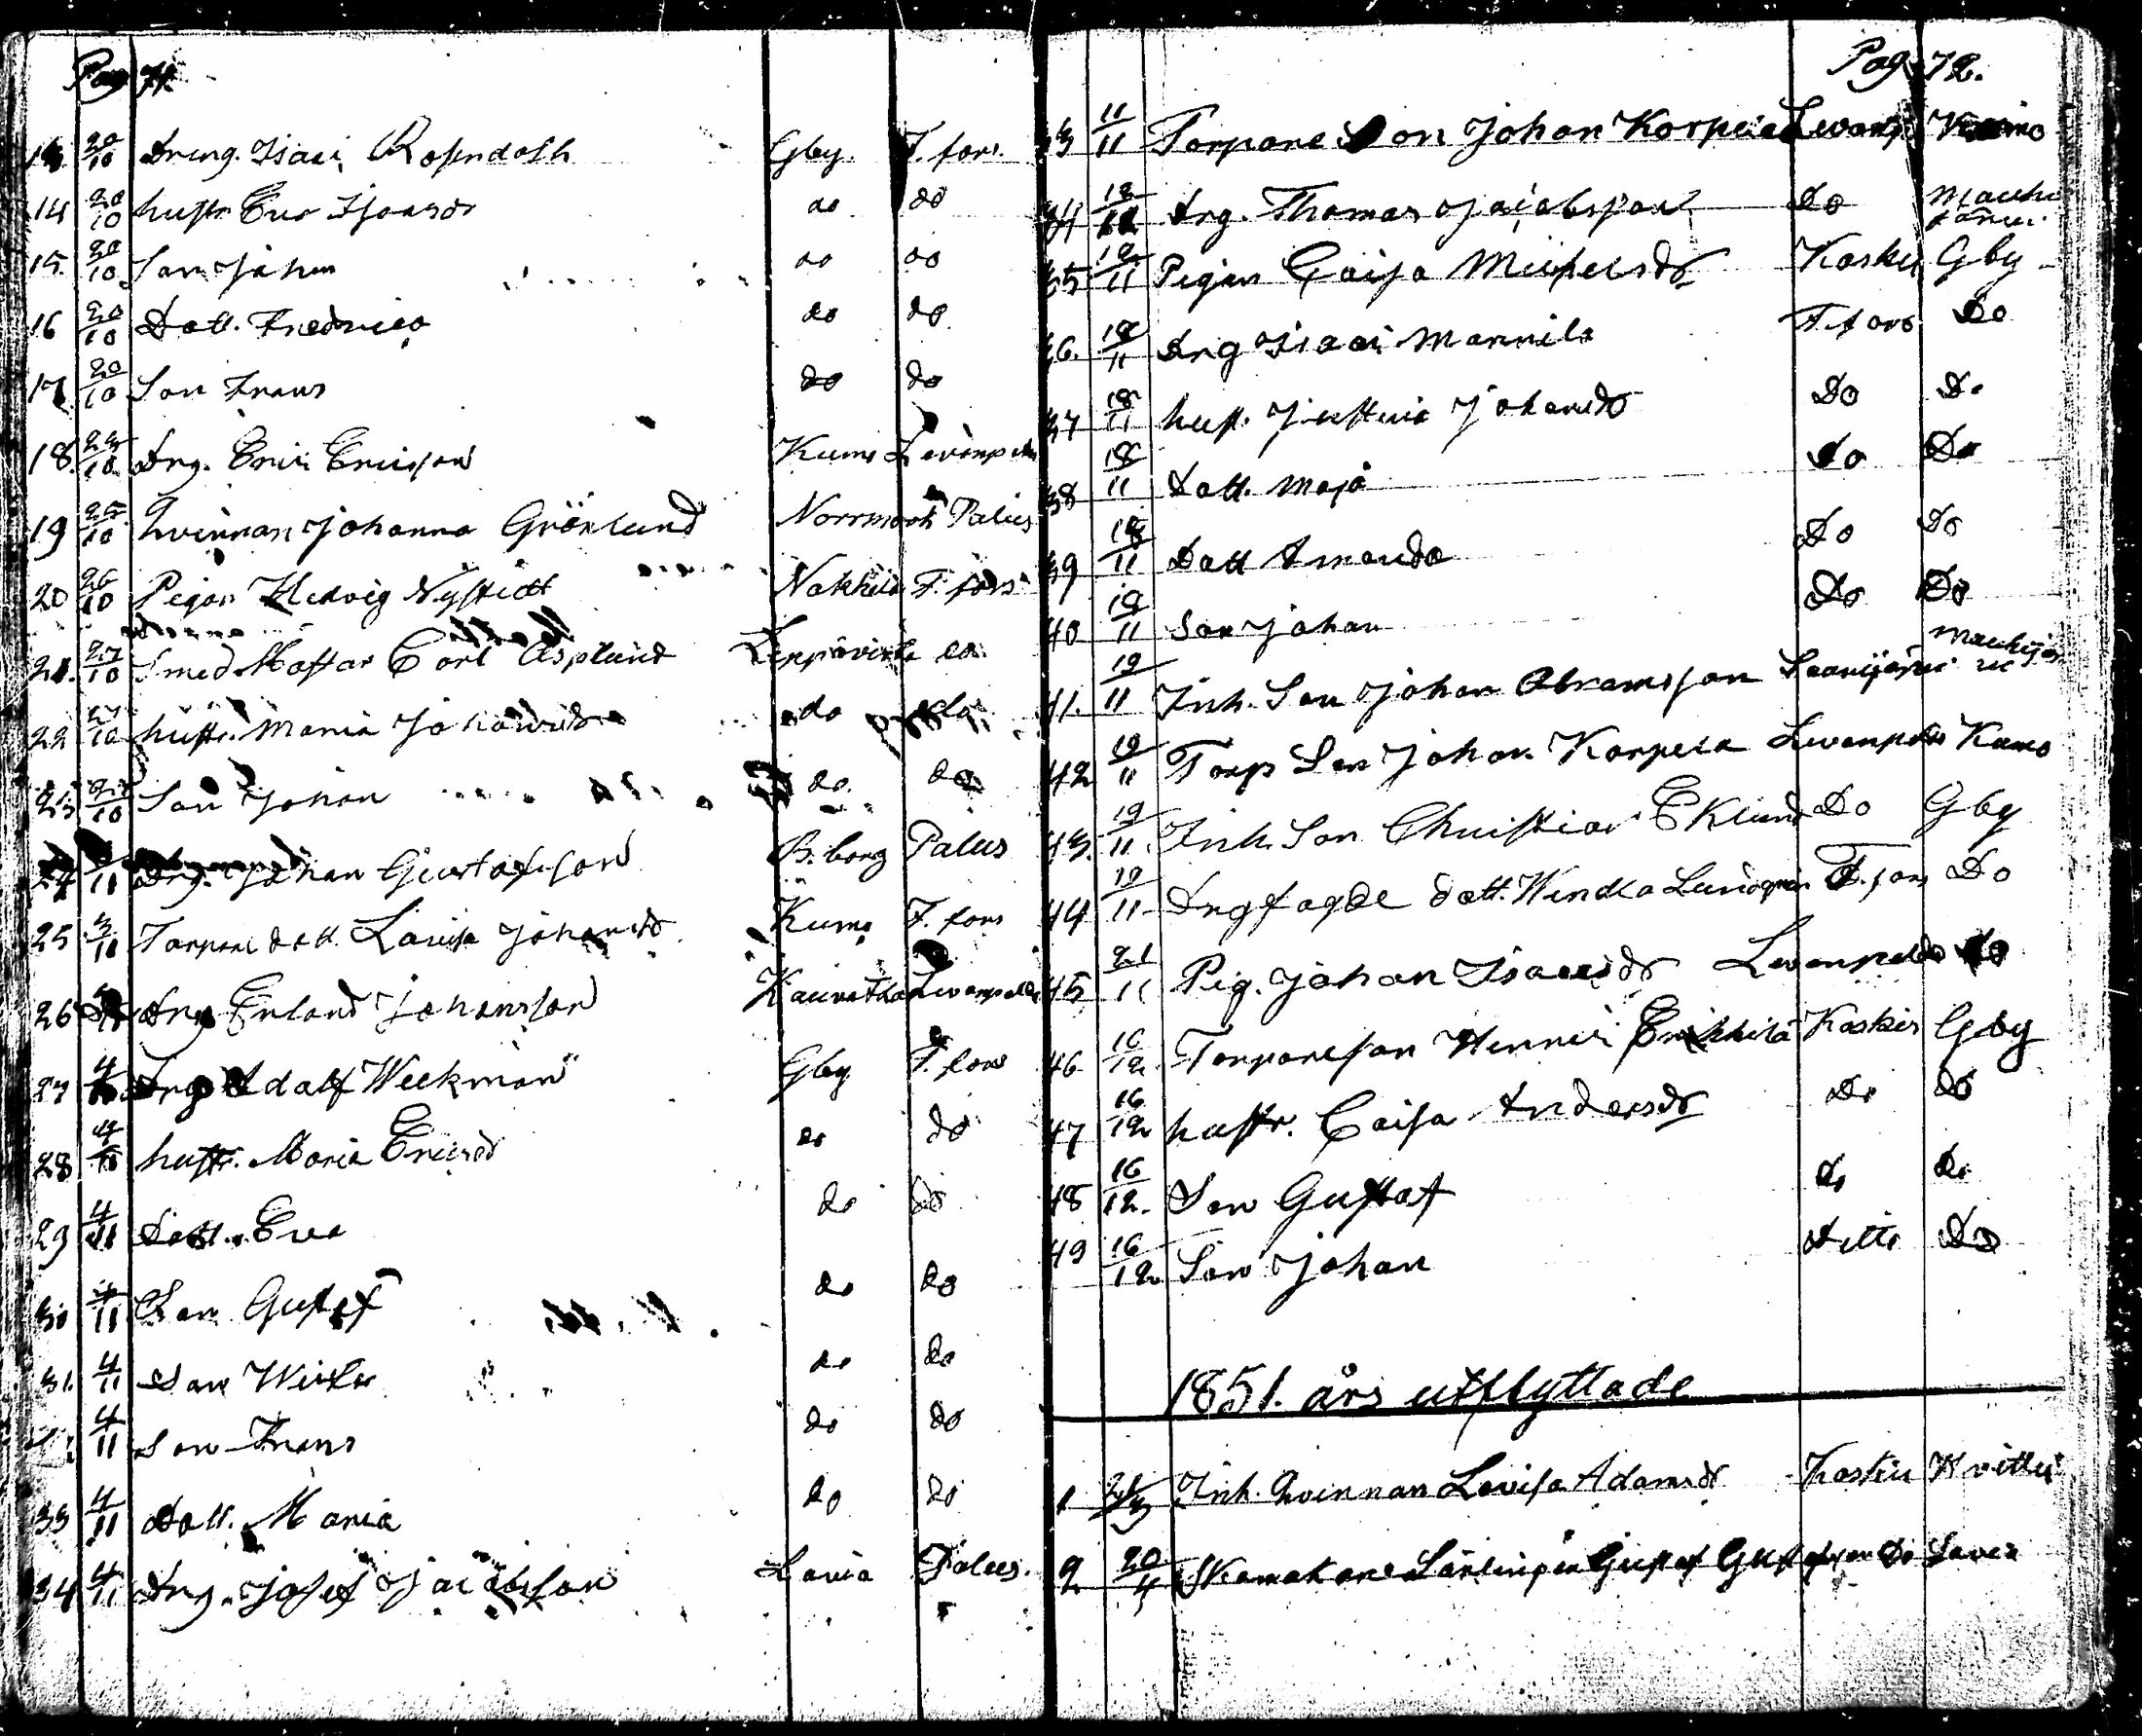 Pag 71.
13. 20/10 Dreng. Isac Rosendahl Gby. F. fors.
14 20/10 hustr. Eva Isaksdr do do
15. 20/10 Son Johan do do
16 20/10 Dott. Fredrica do do
17. 20/10 Son Frans do do
18. 23/10 Drg. Eric Ericsson Kumo Levanpelto
19 25/10 Qvinnan Johanna Grönlund Norrmark Palus
20 26/10 Pigan Hedvig Nystedt Nakkila F. fors
21. 27/10 Smed Mästar Carl Asplund Leppävirta do
22 27/10 hustr. Maria Johansdr do do
23 27/10 Son Johan do do
24 11 Drg. Johan Gustafsson B.borg Palus
25 3/11 Torpare dott. Lovisa Johansdr Kumo F. fors
26 Drg Erland Johansson Levanpelto
27 4 Drg Adolf Weckman Gby F. fors
28 4/11 hustr. Maria Ericsdr do do
29 4/11 Dott. Eva do do
30 4/11 Son Gustaf do do
31. 4/11 Son do do
4/11 Son Frans do do
33 4/11 Dott. Maria do do
34 4/11 Drg. Josef Jacobsson Lavia Palus.
Pag 72.
33 11/11 Torpare Son Johan Korpela Levanp. Kumo
34 12/11 Drg. Thomas Jacobsson Do
35 12/11 Pigan Caisa Michelsdr Koski Gby
36. 18/11 Drg Isac Mannila F. fors Do
37 18/11 hust. Justina Johansdr Do Do
38 18/11 Dott. Maja Do Do
39 18/11 Dott Amanda Do Do
40 18/11 Son Johan Do Do
41. 19/11 Inh. Son Johan Abramsson
42 19/11 Torp Son Johan Korpela Levanpelto Kumo
43. 19/11 Inh. Son Christian Eklund Do Gby
44 19/11 dott. F. fors Do
45 21/11 Pig. Johan Isacsdr Levanpelto Do
46 16/12 Torpareson Henric Erkkilä Koskis Gby
47 16/12 hustr. Caisa Andersdr Do do
48 16/12. Son Gustaf Do Do
49 16/12 Son Johan Ditto Do
1851. års utflyttade
1 Inh. Qvinnan Lovisa Adamsdr Koskis
2 20/4 Skomakare Lärlingen Gustaf Gustafsson Do Lavia